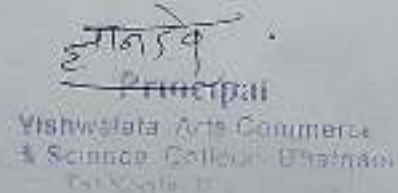 ज्ञानदेव
Principal
Vishwalata Arts Commerce
& Science College Bhatnagar